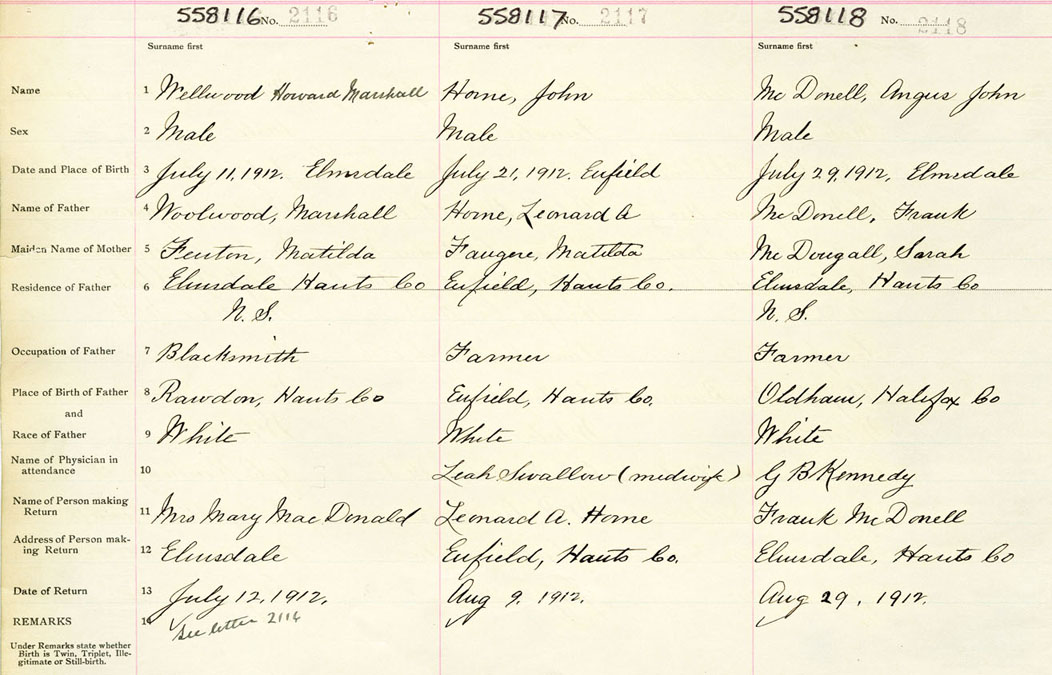 558116 No. 2116 558117 No. 2117 558118 No. 2118
Surname first Surname first Surname first
Name 1 Wellwood Howard Marshall Horne, John Mc Donell, Angus John
Sex 2 Male Male Male
Date and Place of Birth 3 July 11, 1912. Elmsdale July 21, 1912. Enfield July 29, 1912, Elmsdale
Name of Father 4 Woolwood, Marshall Horne, Leonard A Mc Donell, Frank
Maiden Name of Mother 5 Fenton, Matilda Faugere, Matilda Mc Dougall, Sarah
Residence of Father 6 Elmsdale Hants Co Enfield, Hants Co. Elmsdale, Hants Co
N. S. N. S.
Occupation of Father 7 Blacksmith Farmer Farmer
Place of Birth of Father 8 Rawdon, Hants Co Enfield, Hants Co. Oldham, Halifax Co
and
Race of Father 9 White White White
Name of Physician in
attendance 10 Leah Swallow (midwife) G B Kennedy
Name of Person making
Return 11 Mrs Mary Mac Donald Leonard A. Horne Frank Mc Donell
Address of Person mak-
ing Return 12 Elmsdale Enfield, Hants Co. Elmsdale, Hants Co
Date of Return 13 July 12, 1912. Aug 9. 1912. Aug 29, 1912.
REMARKS 14 See letter 2116
Under Remarks state whether
Birth is Twin, Triplet, Ille-
gitimate or Still-birth.